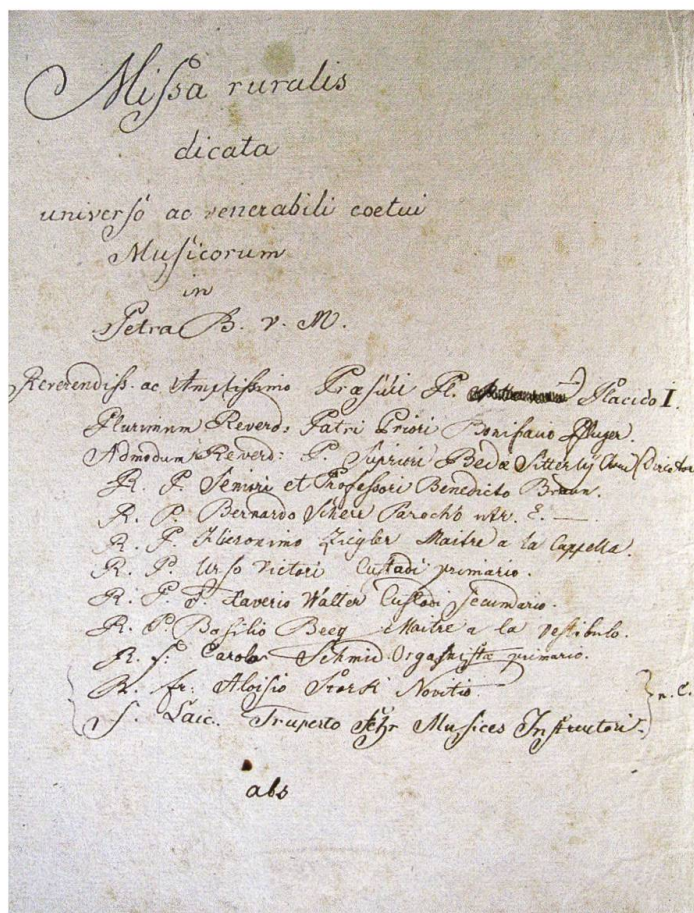 Missa ruralis
dicata
universo ac venerabili coetui
Musicorum
in
Petra B. v. M.
Reverendiss. ac Amplissimo Præsuli Pl. Placido I.
Plurimum Reverd: Patri Priori Bonifacio Pfluger.
Admodum Reverd: P. Supriori Bedæ Sitterly
R. P. Seniori et Professori Benedicto Braun.
R. P. Bernardo Scherr Parocho
R. P. Hieronimo Ziegler Maitre a la Cappella.
R. P. Urso Victori Custodi primario.
R. P. F. Xaverio Walter Custodi secundario.
R. P. Basilio Beeg Maitre a la vestibulo.
R. f: Carolo Schmid Organistæ primario.
R. fr: Aloisio Stork Novitio
f. Laic. Truperto Fehr Musices Instructori
n. C.
abs